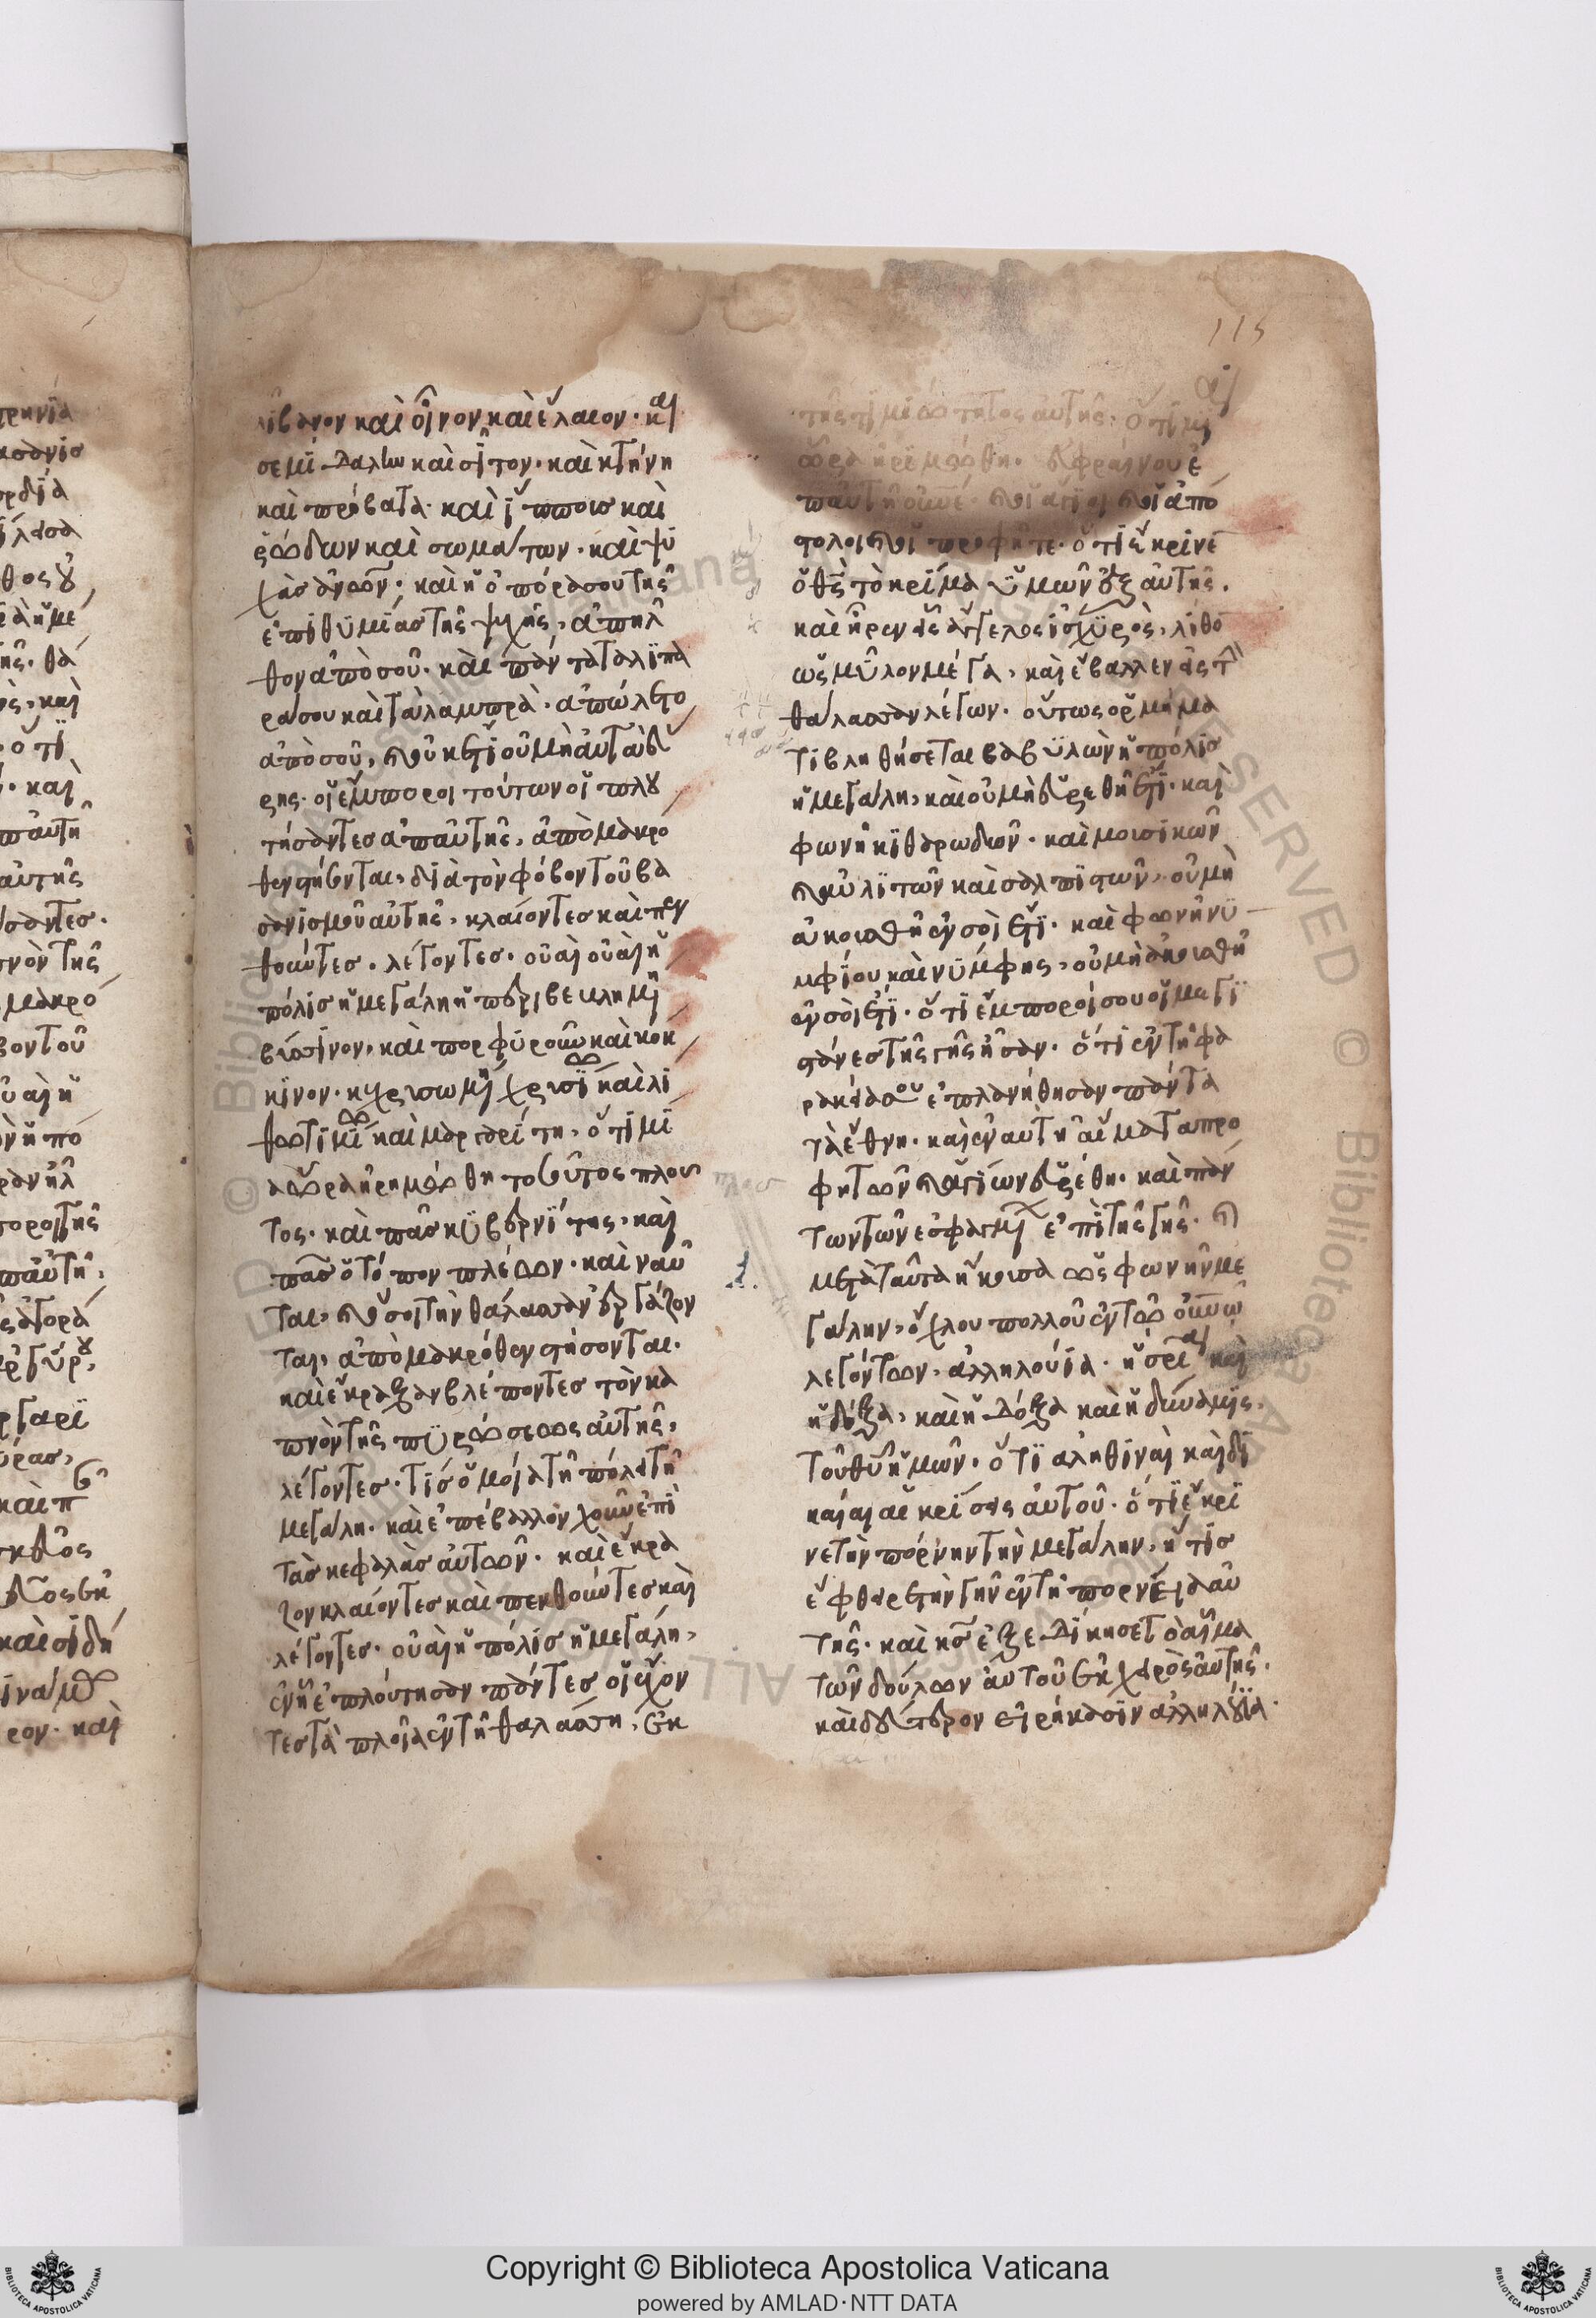 λίβανον καὶ οἶνον καὶ ἔλαιον· καὶ
σεμίδαλιν καὶ σῖτον· καὶ κτήνη
καὶ πρόβατα· καὶ ἵππους καὶ
ῥαιδῶν καὶ σωμάτων· καὶ ψυ
χὰς ἀνων̄· καὶ ἡ ὀπώρα σου τῆς
ἐπιθϋμίας τῆς ψυχῆς, ἀπῆλ
θον ἀπὸ σοῦ· καὶ πάντα τὰ λϊπα
ρά σου καὶ τὰ λαμπρὰ· ἀπώλετο
ἀπὸ σοῦ, καὶ οὐκέτι οὐ μὴ αὐτὰ εὕ
ρης· οἱ ἔμποροι τούτων οἱ πλου
τήσαντες ἀπ' αὐτῆς, ἀπὸ μακρό
θεν στήσονται, διὰ τὸν φόβον τοῦ βα
σανισμοῦ αὐτῆς, κλαίοντες καὶ πεν
θοῦντες, λέγοντες· οὐαὶ οὐαὶ ἡ
πόλις ἡ μεγάλη ἡ περιβεβλημένη
βύσσινον, καὶ πορφϋροῦν καὶ κόκ
κινον· κεχρισωμένη χρισίω καὶ λί
θω τιμίω καὶ μαργαρίτη, ὅτι μϊ
ᾶ ὥρα ἠρημώθη τοσοῦτος πλου
τος· καὶ πᾶς κϋβερνίτης, καὶ
πᾶς ὁ τόπον πλέων· καὶ ναῦ
ται, καὶ ὅσοι τὴν θάλασσαν ἐργάζον
ται, ἀπὸ μακρόθεν στήσονται·
καὶ ἔκραξαν βλέποντες τὸν κα
πνὸν τῆς πϋρώσεως αὐτῆς,
λέγοντες· τίς ὁμοία τῆ πόλει τῆ
μεγάλη· καὶ ἐπέβαλλον χοῦν ἐπὶ
τὰς κεφαλὰς αὐτῶν· καὶ ἔκρα
ζον κλαίοντες καὶ πενθοῦντες καὶ
λέγοντες· οὐαὶ ἡ πόλις ἡ μεγάλη,
ἐν ἧ ἐπλούτησαν πάντες οἱ ἔχον
τες τὰ πλοῖα ἐν τῆ θαλάσση, ἐκ
115
τῆς τιμιώτητος αὐτῆς· ὅτι μιᾶ
ὥρα ἠρϊμώθη· εὐφραίνου ἐ
π' αὐτῆ οὐνέ· καὶ οἱ ἅγιοι καὶ οἱ ἀπό
στολοι καὶ οἱ προφῆτε· ὅτι ἔκρινε
ὁ θς τὸ κρίμα ϋμῶν ἐξ αὐτῆς.
καὶ ἦρεν εἷς ἄγγελος ἰσχϋρὸς, λίθον
ὡς μῦλον μέγα, καὶ ἔβαλλεν εἰς τὴν
θάλασσαν λέγων· οὕτως ὁρμήμα
τι βληθήσεται βαβϋλὼν ἡ πόλις
ἡ μεγάλη, καὶ οὐ μὴ εὑρεθῆ ἔτι· καὶ
φωνὴ κϊθαρωδῶν· καὶ μουσικῶν
καὶ αὐλϊτῶν καὶ σαλπιστῶν, οὐ μὴ
ἀκουσθῆ ἐν σοὶ ἔτϊ· καὶ φωνὴ νϋ
μφίου καὶ νϋμφης, οὐ μὴ ἀκουσθῆ
ἐν σοὶ ἔτϊ· ὅτι ἔμποροί σου οἱ μεγϊ
στάνες τῆς γῆς ἦσαν· ὅτι ἐν τῆ φα
ρμακεία σου ἐπλανήθησαν πάντα
τὰ ἔθνη· καὶ ἐν αὐτῆ αἵματα προ
φητῶν καὶ ἁγίων εὑρέθη· καὶ πάν
των τῶν ἐσφαγμένων ἐπὶ τῆς γῆς· καὶ
μετὰ ταῦτα ἤκουσα ὡς φωνὴν με
γάλην, ὄχλου πολλοῦ ἐν τῶ οὐνω
λεγόντων, ἀλληλούϊα· ἡ σρία καὶ
ἡ δόξα, καὶ ἡ δόξα καὶ ἡ δύναμϊς,
τοῦ θῦ ἡμῶν· ὅτϊ ἀληθιναὶ καὶ δί
καιαι αἱ κρίσεις αὐτοῦ· ὅτι ἔκρϊ
νε τὴν πόρνην τὴν μεγάλην, ἥτις
ἔφθειρε τὴν γῆν ἐν τῆ πορνεία αὐ
τῆς· καὶ κς ἐξεδίκησε τὸ αἷμα
τῶν δούλων αὐτοῦ ἐκ χειρὸς αὐτῆς.
καὶ δεύτερον εἰρήκασϊν ἀλληλουϊα·
Copyright © Biblioteca Apostolica Vaticana
powered by AMLAD·NTT DATA